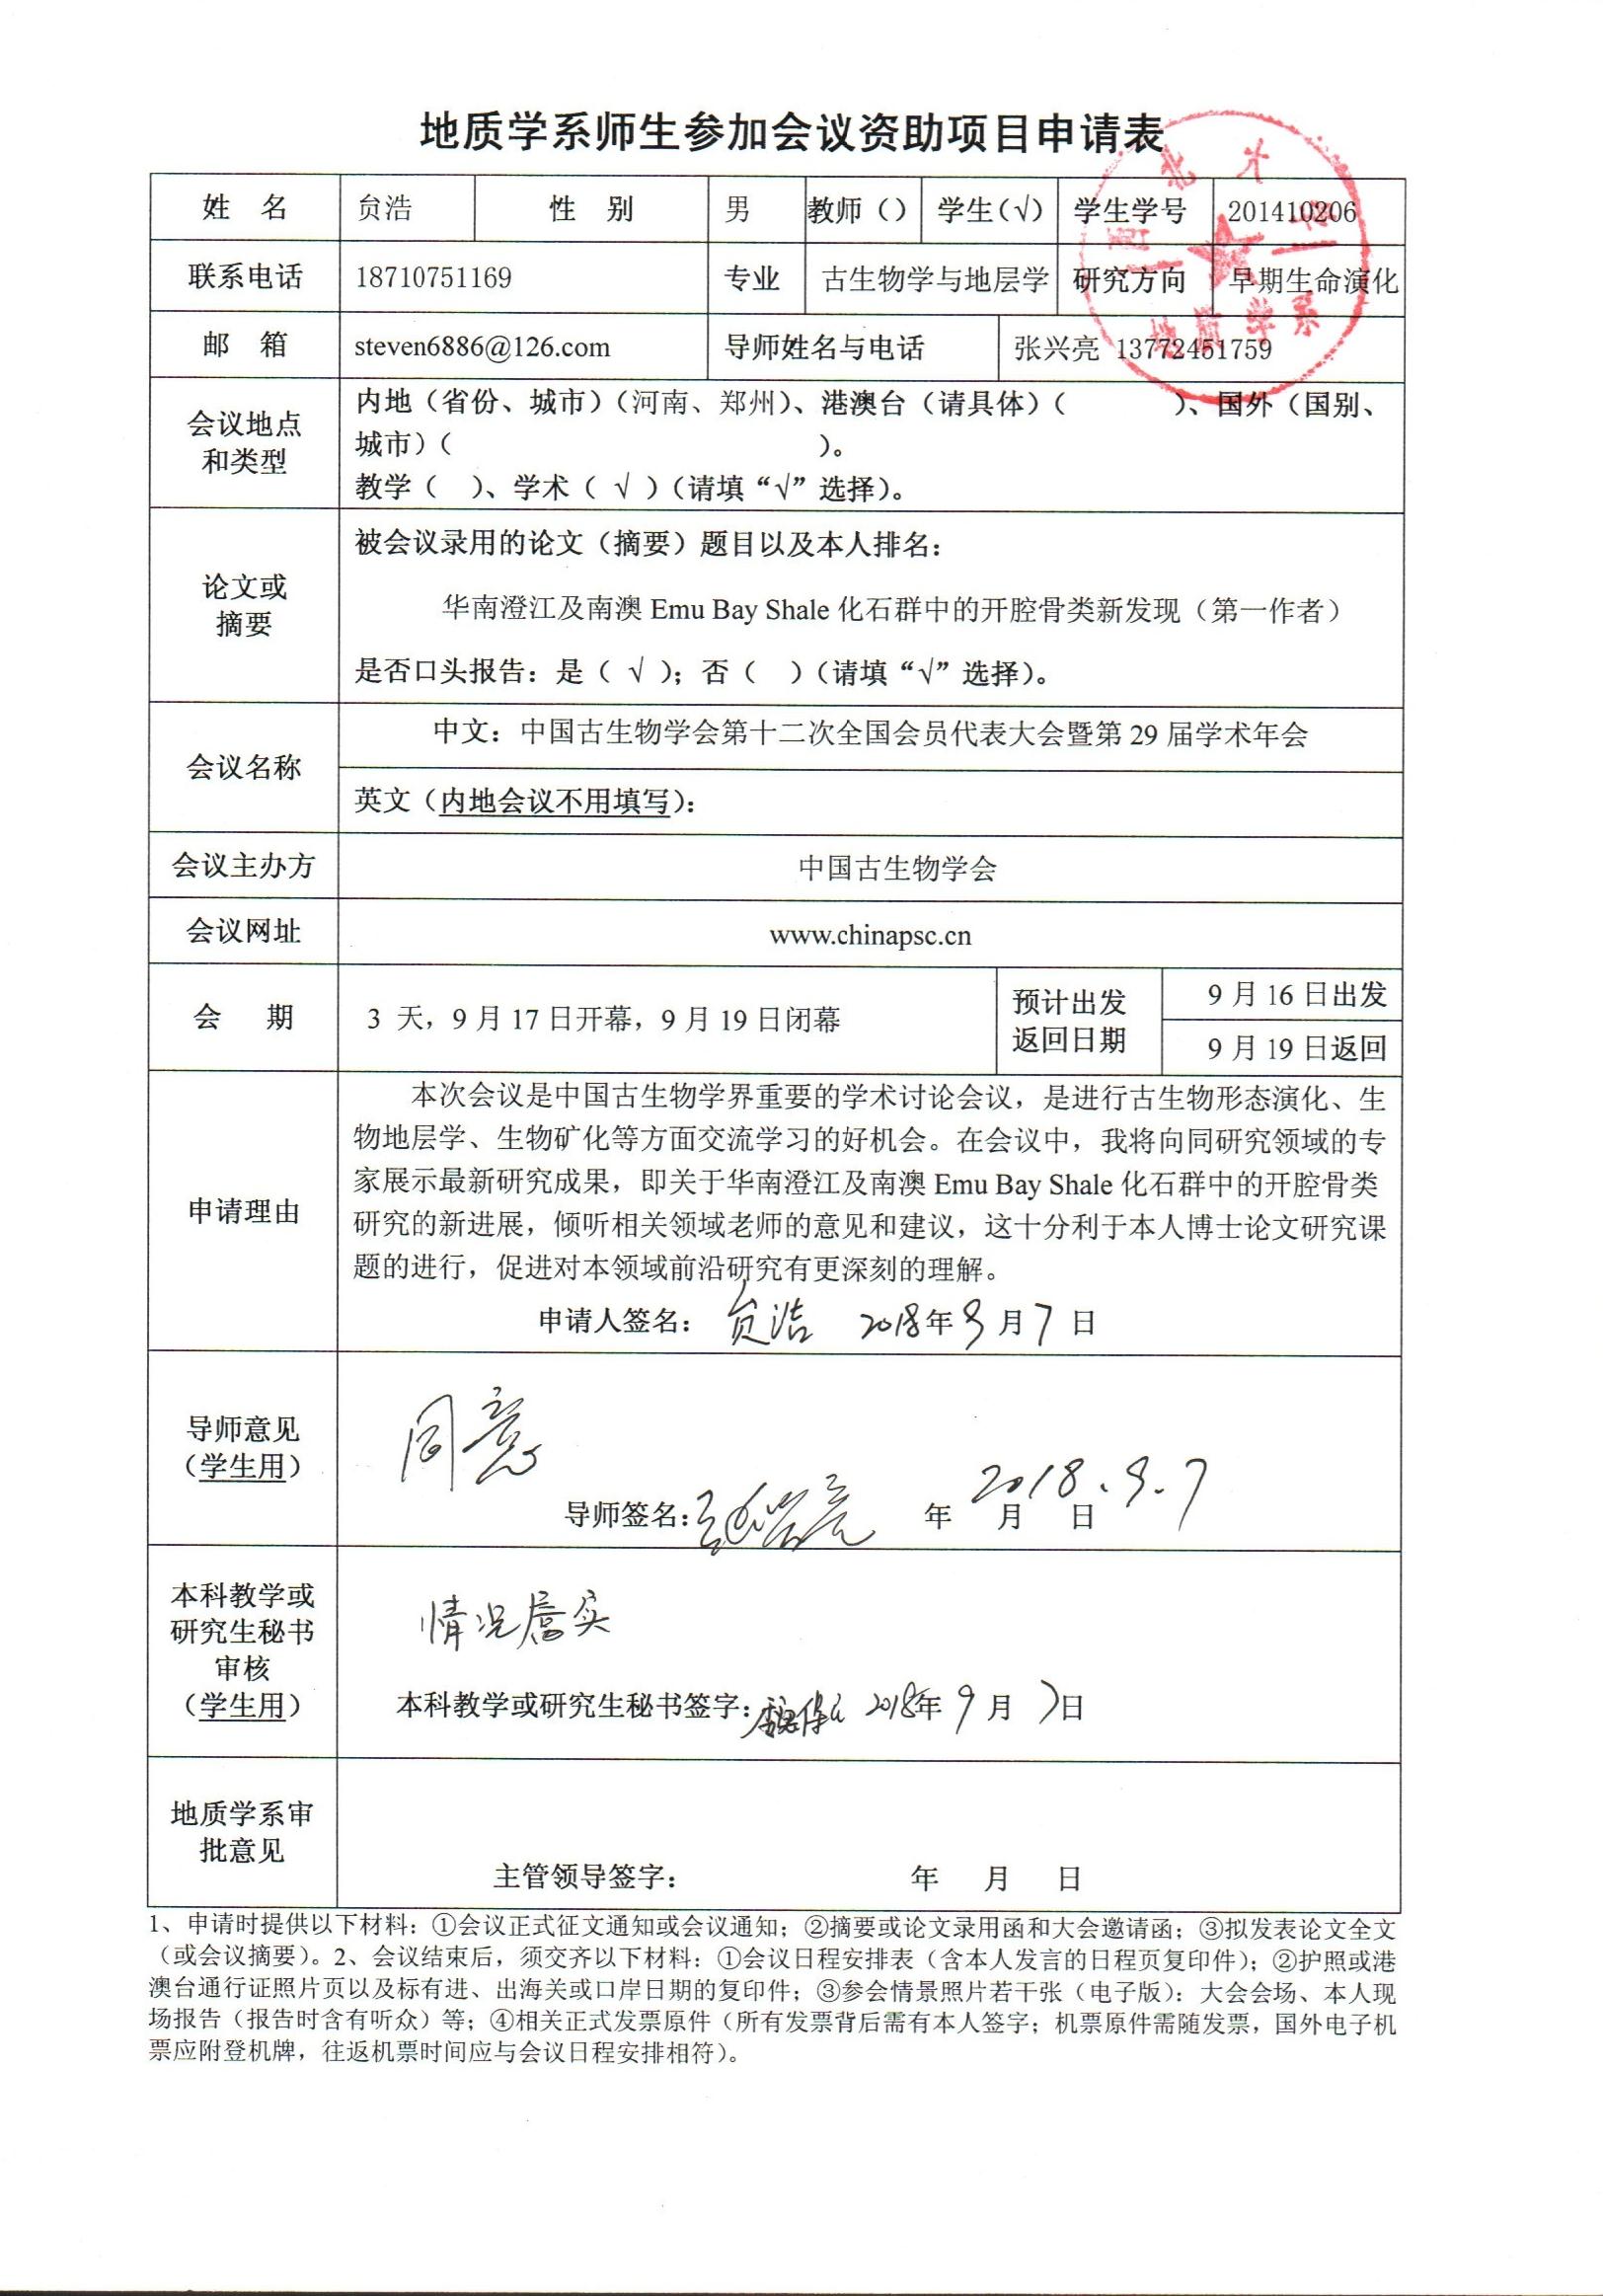 地质学系师生参加会议资助项目申请表
姓 名 贠浩 性 别 男 教师（） 学生（√） 学生学号 201410206
联系电话 18710751169 专业 古生物学与地层学 研究方向 早期生命演化
邮 箱 steven6886@126.com 导师姓名与电话 张兴亮 13772451759
会议地点和类型
内地（省份、城市）（河南、郑州）、港澳台（请具体）（ ）、国外（国别、
城市）（ ）。
教学（ ）、学术（ √ ）（请填“√”选择）。
论文或摘要
被会议录用的论文（摘要）题目以及本人排名：
华南澄江及南澳 Emu Bay Shale 化石群中的开腔骨类新发现（第一作者）
是否口头报告：是（ √ ）；否（ ）（请填“√”选择）。
会议名称
中文：中国古生物学会第十二次全国会员代表大会暨第 29 届学术年会
英文（内地会议不用填写）：
会议主办方 中国古生物学会
会议网址 www.chinapsc.cn
会 期 3 天，9 月 17 日开幕，9 月 19 日闭幕
预计出发返回日期
9 月 16 日出发
9 月 19 日返回
申请理由
本次会议是中国古生物学界重要的学术讨论会议，是进行古生物形态演化、生
物地层学、生物矿化等方面交流学习的好机会。在会议中，我将向同研究领域的专
家展示最新研究成果，即关于华南澄江及南澳 Emu Bay Shale 化石群中的开腔骨类
研究的新进展，倾听相关领域老师的意见和建议，这十分利于本人博士论文研究课
题的进行，促进对本领域前沿研究有更深刻的理解。
申请人签名： 贠浩 2018年 9 月 7 日
导师意见
（学生用）
同意
导师签名： 张兴亮 年 月 日 2018.9.7
本科教学或
研究生秘书
审核
（学生用）
情况属实
本科教学或研究生秘书签字： 2018年 9 月 7日
地质学系审
批意见
主管领导签字： 年 月 日
1、申请时提供以下材料：①会议正式征文通知或会议通知；②摘要或论文录用函和大会邀请函；③拟发表论文全文
（或会议摘要）。2、会议结束后，须交齐以下材料：①会议日程安排表（含本人发言的日程页复印件）；②护照或港
澳台通行证照片页以及标有进、出海关或口岸日期的复印件；③参会情景照片若干张（电子版）：大会会场、本人现
场报告（报告时含有听众）等；④相关正式发票原件（所有发票背后需有本人签字；机票原件需随发票，国外电子机
票应附登机牌，往返机票时间应与会议日程安排相符）。
西北大学
地质学系